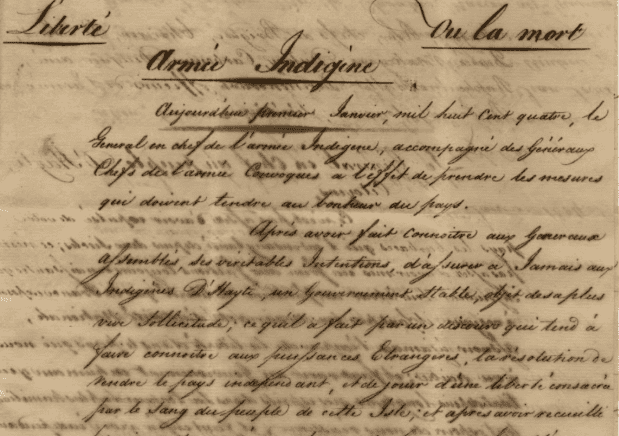 Liberté Ou la mort
Armée Indigène
Aujourd'hui premier Janvier, mil huit Cent quatre, le
Général en chef de l'armée Indigene, accompagné des Généraux
Chefs de l'armée Convoqués a l'effet de prendre les mesures
qui doivent tendre au bonheur du pays.
Après avoir fait connoitre aux Generaux
assemblés ses véritables Intentions d'assurer à Jamais aux
Indigènes D'Hayti, un Gouvernement Stable, objet de sa plus
vive Sollicitude; ce qu'il a fait par un discours qui tend à
faire connoitre aux puissances Etrangères, la résolution de
rendre le pays indépendant, et de jouir d'une liberté consacrée
par le Sang du peuple de cette Isle; et après avoir recueilli